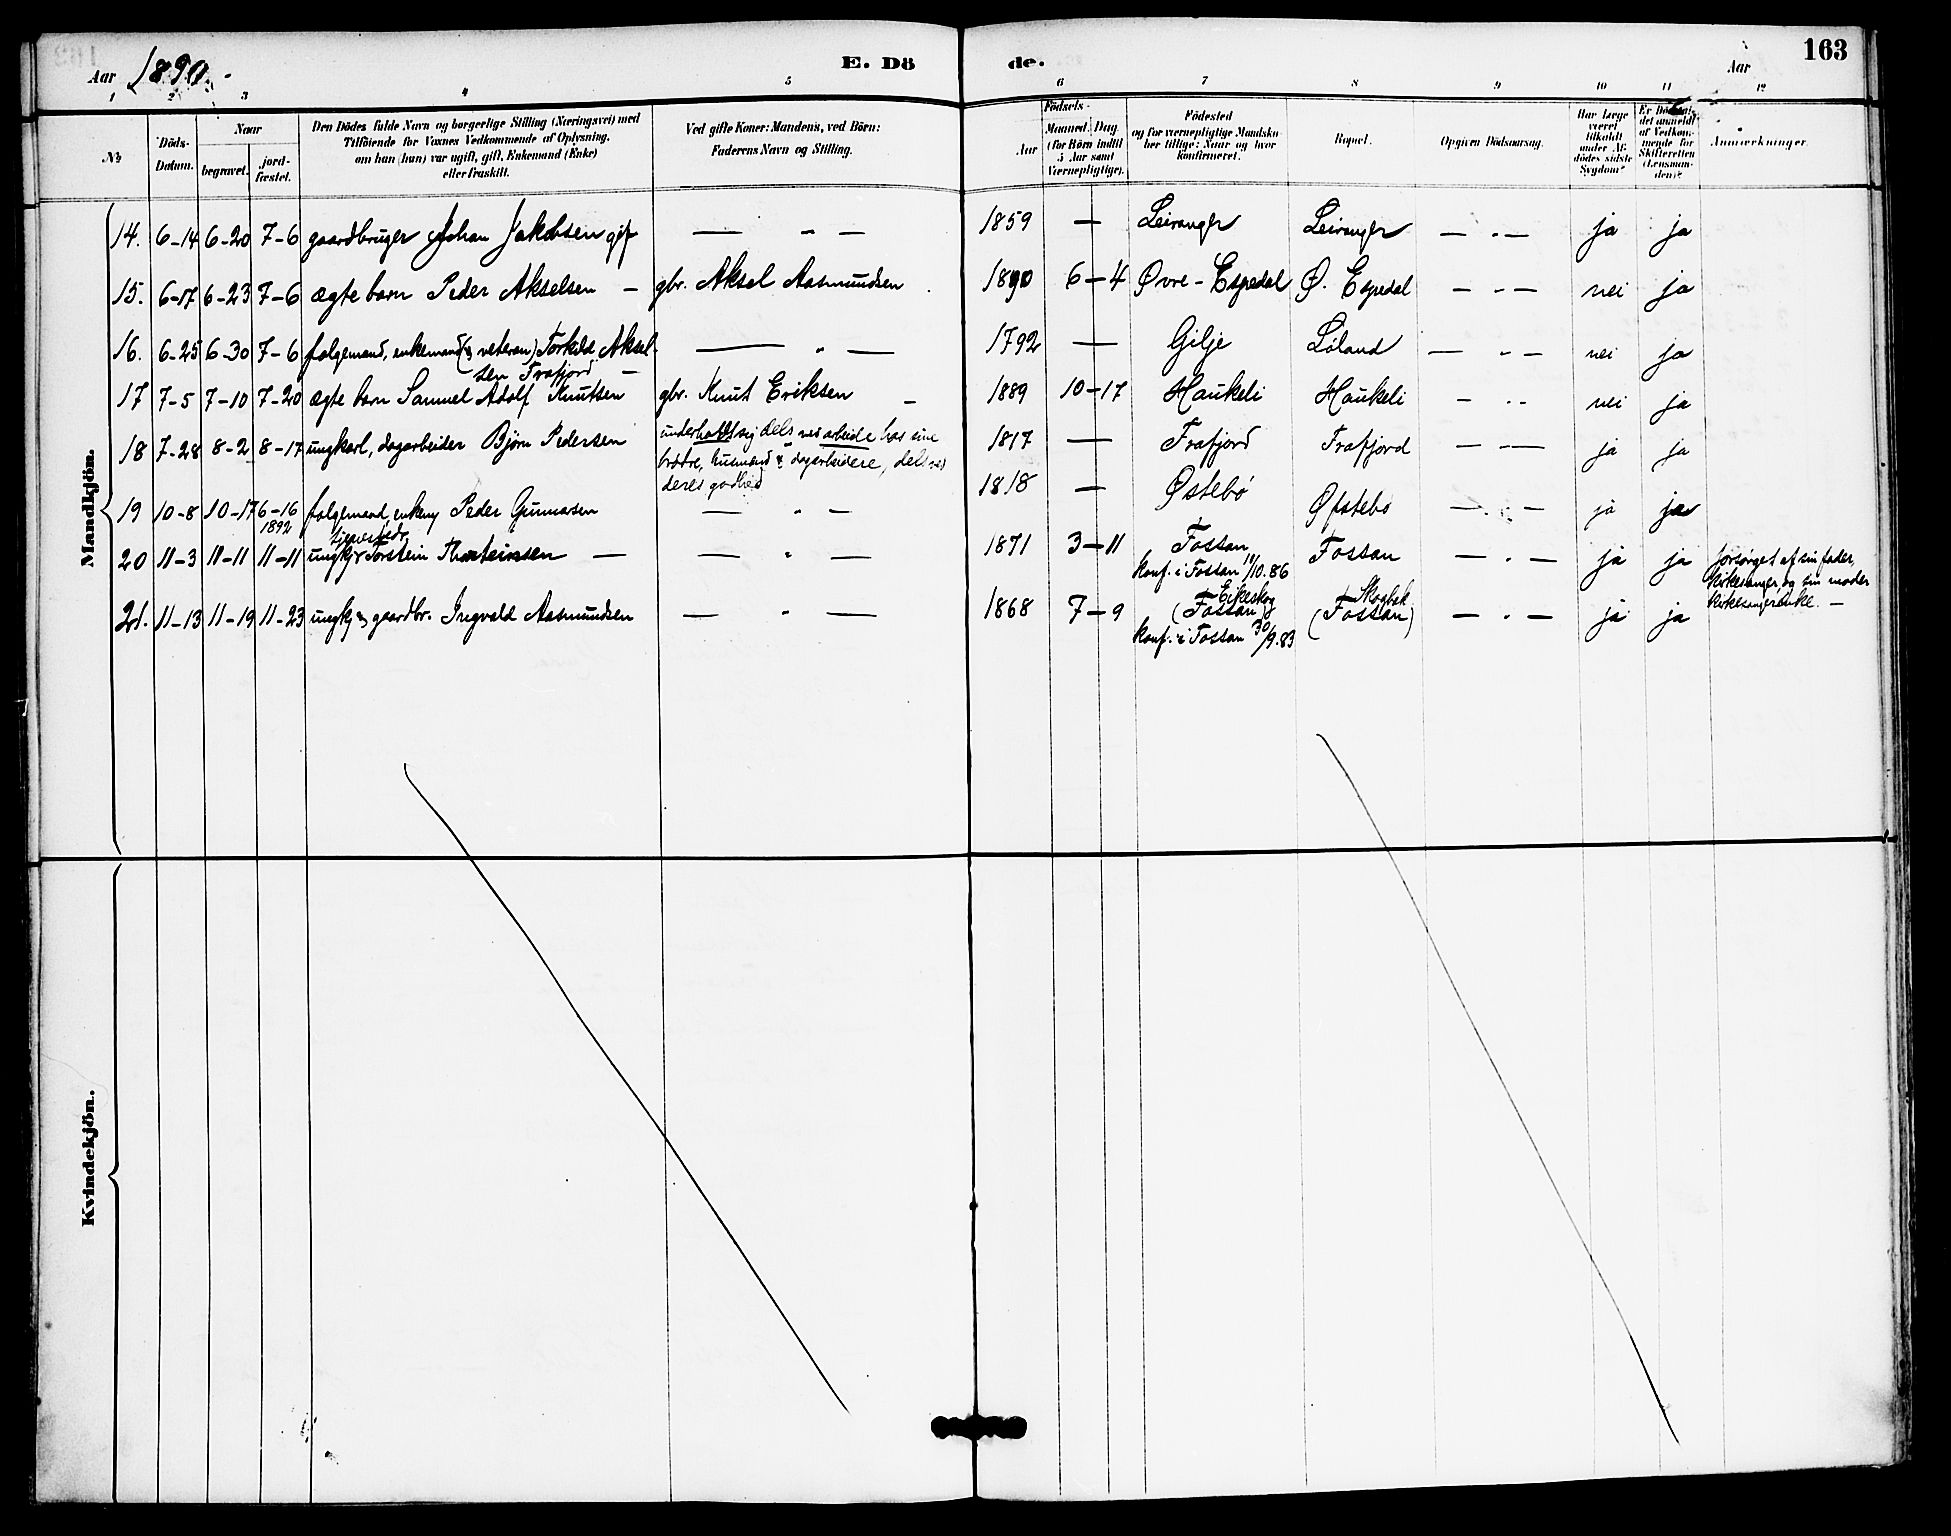 Aar 1890.-
E. Dö
de.
Aar
163
1 2 3 4 5 6 7 8 9 10 11 12
№
Döds-
Datum.
Naar
begravet.
jord-
fæstet.
Den Dödes fulde Navn og borgerlige Stilling (Næringsvei) med
Tilföiende for Voxnes Vedkommende af Oplysning,
om han (hun) var ugift, gift, Enkemand (Enke)
eller fraskilt.
Ved gifte Koner: Mandens, ved Börn:
Faderens Navn og Stilling.
Födsels-
Aar
Maaned Dag
(for Börn indtil
5 Aar samt
Værnepligtige).
Födested
og for værnepligtige Mandskaber tillige: Naar og hvor
konfirmeret.
Bopæl.
Opgiven Dödsaarsag.
Har Læge
været
tilkaldt
under Af-
dödes sidste
Sygdom?
Er Dödsfal-
det anmeldt
af Vedkom-
mende for
Skifteretten
(Lensman-
den)?
Anmærkninger.
Mandkjön.
14. 6-14 6-20 7-6 gaardbruger Johan Jakobsen gift — „ — 1859 — Leiranger Leiranger — „ — ja ja
15. 6-17 6-23 7-6 ægte barn Peder Akselsen — gbr. Aksel Aasmundsen 1890 6-4 Øvre-Espedal Ø. Espedal — „ — nei ja
16. 6-25 6-30 7-6 folgemand, enkemand (& veteran) Torkild Aksel-
sen Frafjord — — „ — 1792 — Gilje Løland — „ — nei ja
17 7-5 7-10 7-20 ægte barn Samuel Adolf Knutsen gbr. Knut Eriksen — 1889 10-17 Haukeli Haukeli — „ nei ja
18 7-28 8-2 8-17 ungkarl, dagarbeider Bjørn Pedersen underholdt sig dels ved arbeide hos sine
brødre, husmænd & dagarbeidere, dels ved
deres godhed 1817 — Frafjord Frafjord — „ — ja ja
19 10-8 10-17 6-16
1892 folgemand, enkem Peder Gunnarsen — „ — 1818 — Østebø Øfstebø — „ — ja ja
20 11-3 11-11 11-11 ungkj Torstein Thorsteinsen — — „ — 1871 3-11 Fossan
konf. i Fossan 11/10.86 Fossan — „ — ja ja forsørget af sin fader,
kirkesanger og sin moder
kirkesangerenke. —
21. 11-13 11-19 11-23 ungkj & gaardbr. Ingvald Aasmundsen — „ — 1868 7-9 Eikeskog
(Fossan)
konf. i Fossan 30/9.83 Skogbæk
(Fossan) — „ — ja ja
Kvindekjön.